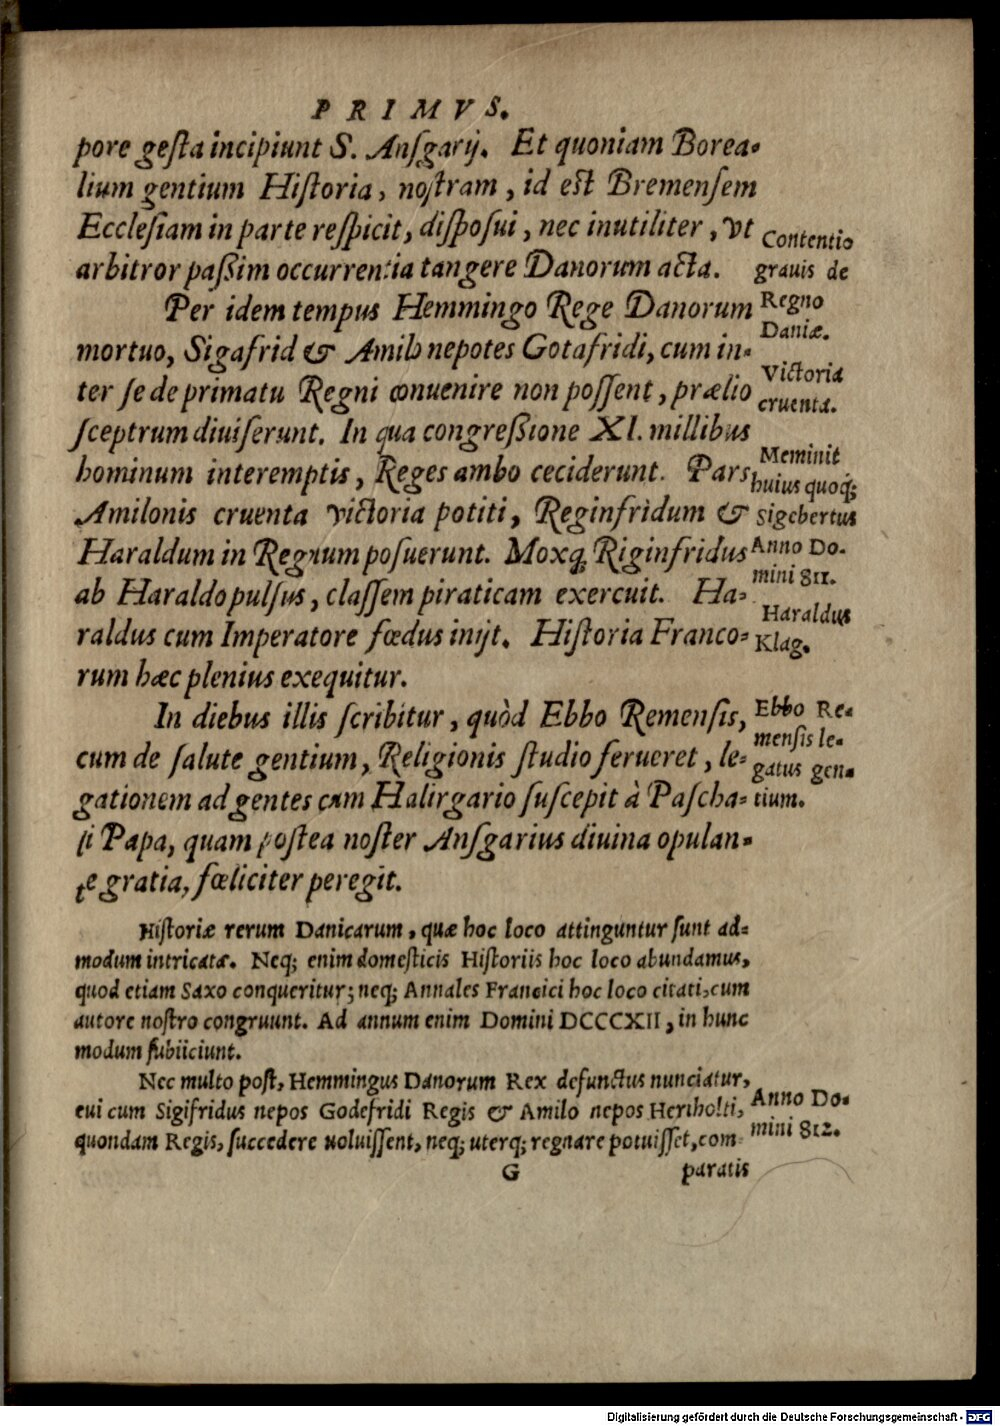 PRIMVS.
pore gesta incipiunt S. Ansgarij. Et quoniam Borea-
lium gentium Historia, nostram, id est Bremensem
Ecclesiam in parte respicit, disposui, nec inutiliter, vt
arbitror paßim occurrentia tangere Danorum acta.
Contentio
grauis de
Regno
Daniæ.
Per idem tempus Hemmingo Rege Danorum
mortuo, Sigafrid & Amilo nepotes Gotafridi, cum in-
ter se de primatu Regni conuenire non possent, prælio
sceptrum diuiserunt. In qua congreßione XI. millibus
Victoria
cruenta.
hominum interemptis, Reges ambo ceciderunt. Pars
Amilonis cruenta victoria potiti, Reginfridum &
Haraldum in Regnum posuerunt. Moxq; Riginfridus
ab Haraldo pulsus, classem piraticam exercuit. Ha-
raldus cum Imperatore fœdus inijt. Historia Franco-
rum hæc plenius exequitur.
Meminit
huius quoq;
Sigebertus
Anno Do-
mini 811.
Haraldus
Klag.
In diebus illis scribitur, quòd Ebbo Remensis,
cum de salute gentium, Religionis studio ferueret, le-
gationem ad gentes cum Halirgario suscepit à Pascha-
li Papa, quam postea noster Ansgarius diuina opulan-
te gratia, fœliciter peregit.
Ebbo Re-
mensis le-
gatus gen-
tium.
Historiæ rerum Danicarum, quæ hoc loco attinguntur sunt ad-
modum intricatæ. Neq; enim domesticis Historiis hoc loco abundamus,
quod etiam Saxo conqueritur; neq; Annales Francici hoc loco citati, cum
autore nostro congruunt. Ad annum enim Domini DCCCXII, in hunc
modum subiiciunt.
Nec multo post, Hemmingus Danorum Rex defunctus nunciatur,
cui cum Sigifridus nepos Godefridi Regis & Amilo nepos Heriholti,
quondam Regis, succedere uoluissent, neq; uterq; regnare potuisset, com-
Anno Do-
mini 812.
G
paratis
Digitalisierung gefördert durch die Deutsche Forschungsgemeinschaft - DFG